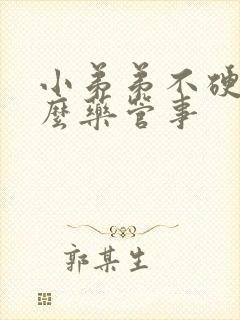 小弟弟不硬
麼藥管事
郭某生